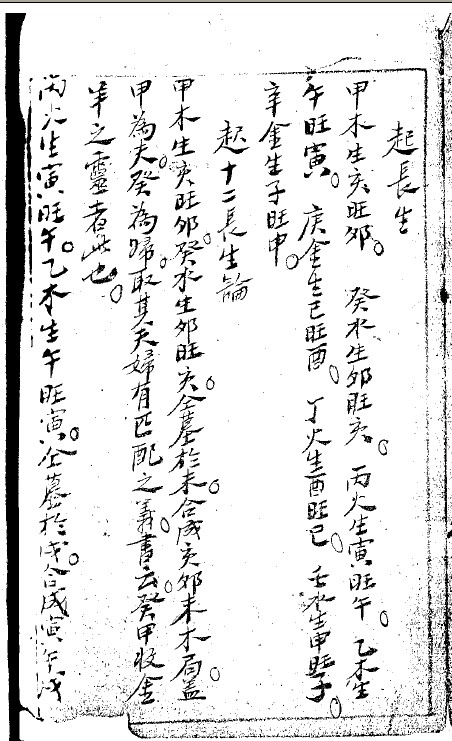 起長生
甲木生亥旺卯。癸水生卯旺亥。丙火生寅旺午。乙木生
午旺寅。庚金生巳旺酉。丁火生酉旺巳。壬水生申旺子。
辛金生子旺申。
起十二長生論
甲木生亥旺卯。癸水生卯旺亥。仝墓於未。合成亥卯未木局。盖
甲為夫。癸為婦。取其夫婦有匹配之義。書云。癸甲收金
羊之靈者。此也。
丙火生寅旺午。乙木生午旺寅。仝墓於戌。合成寅午戌